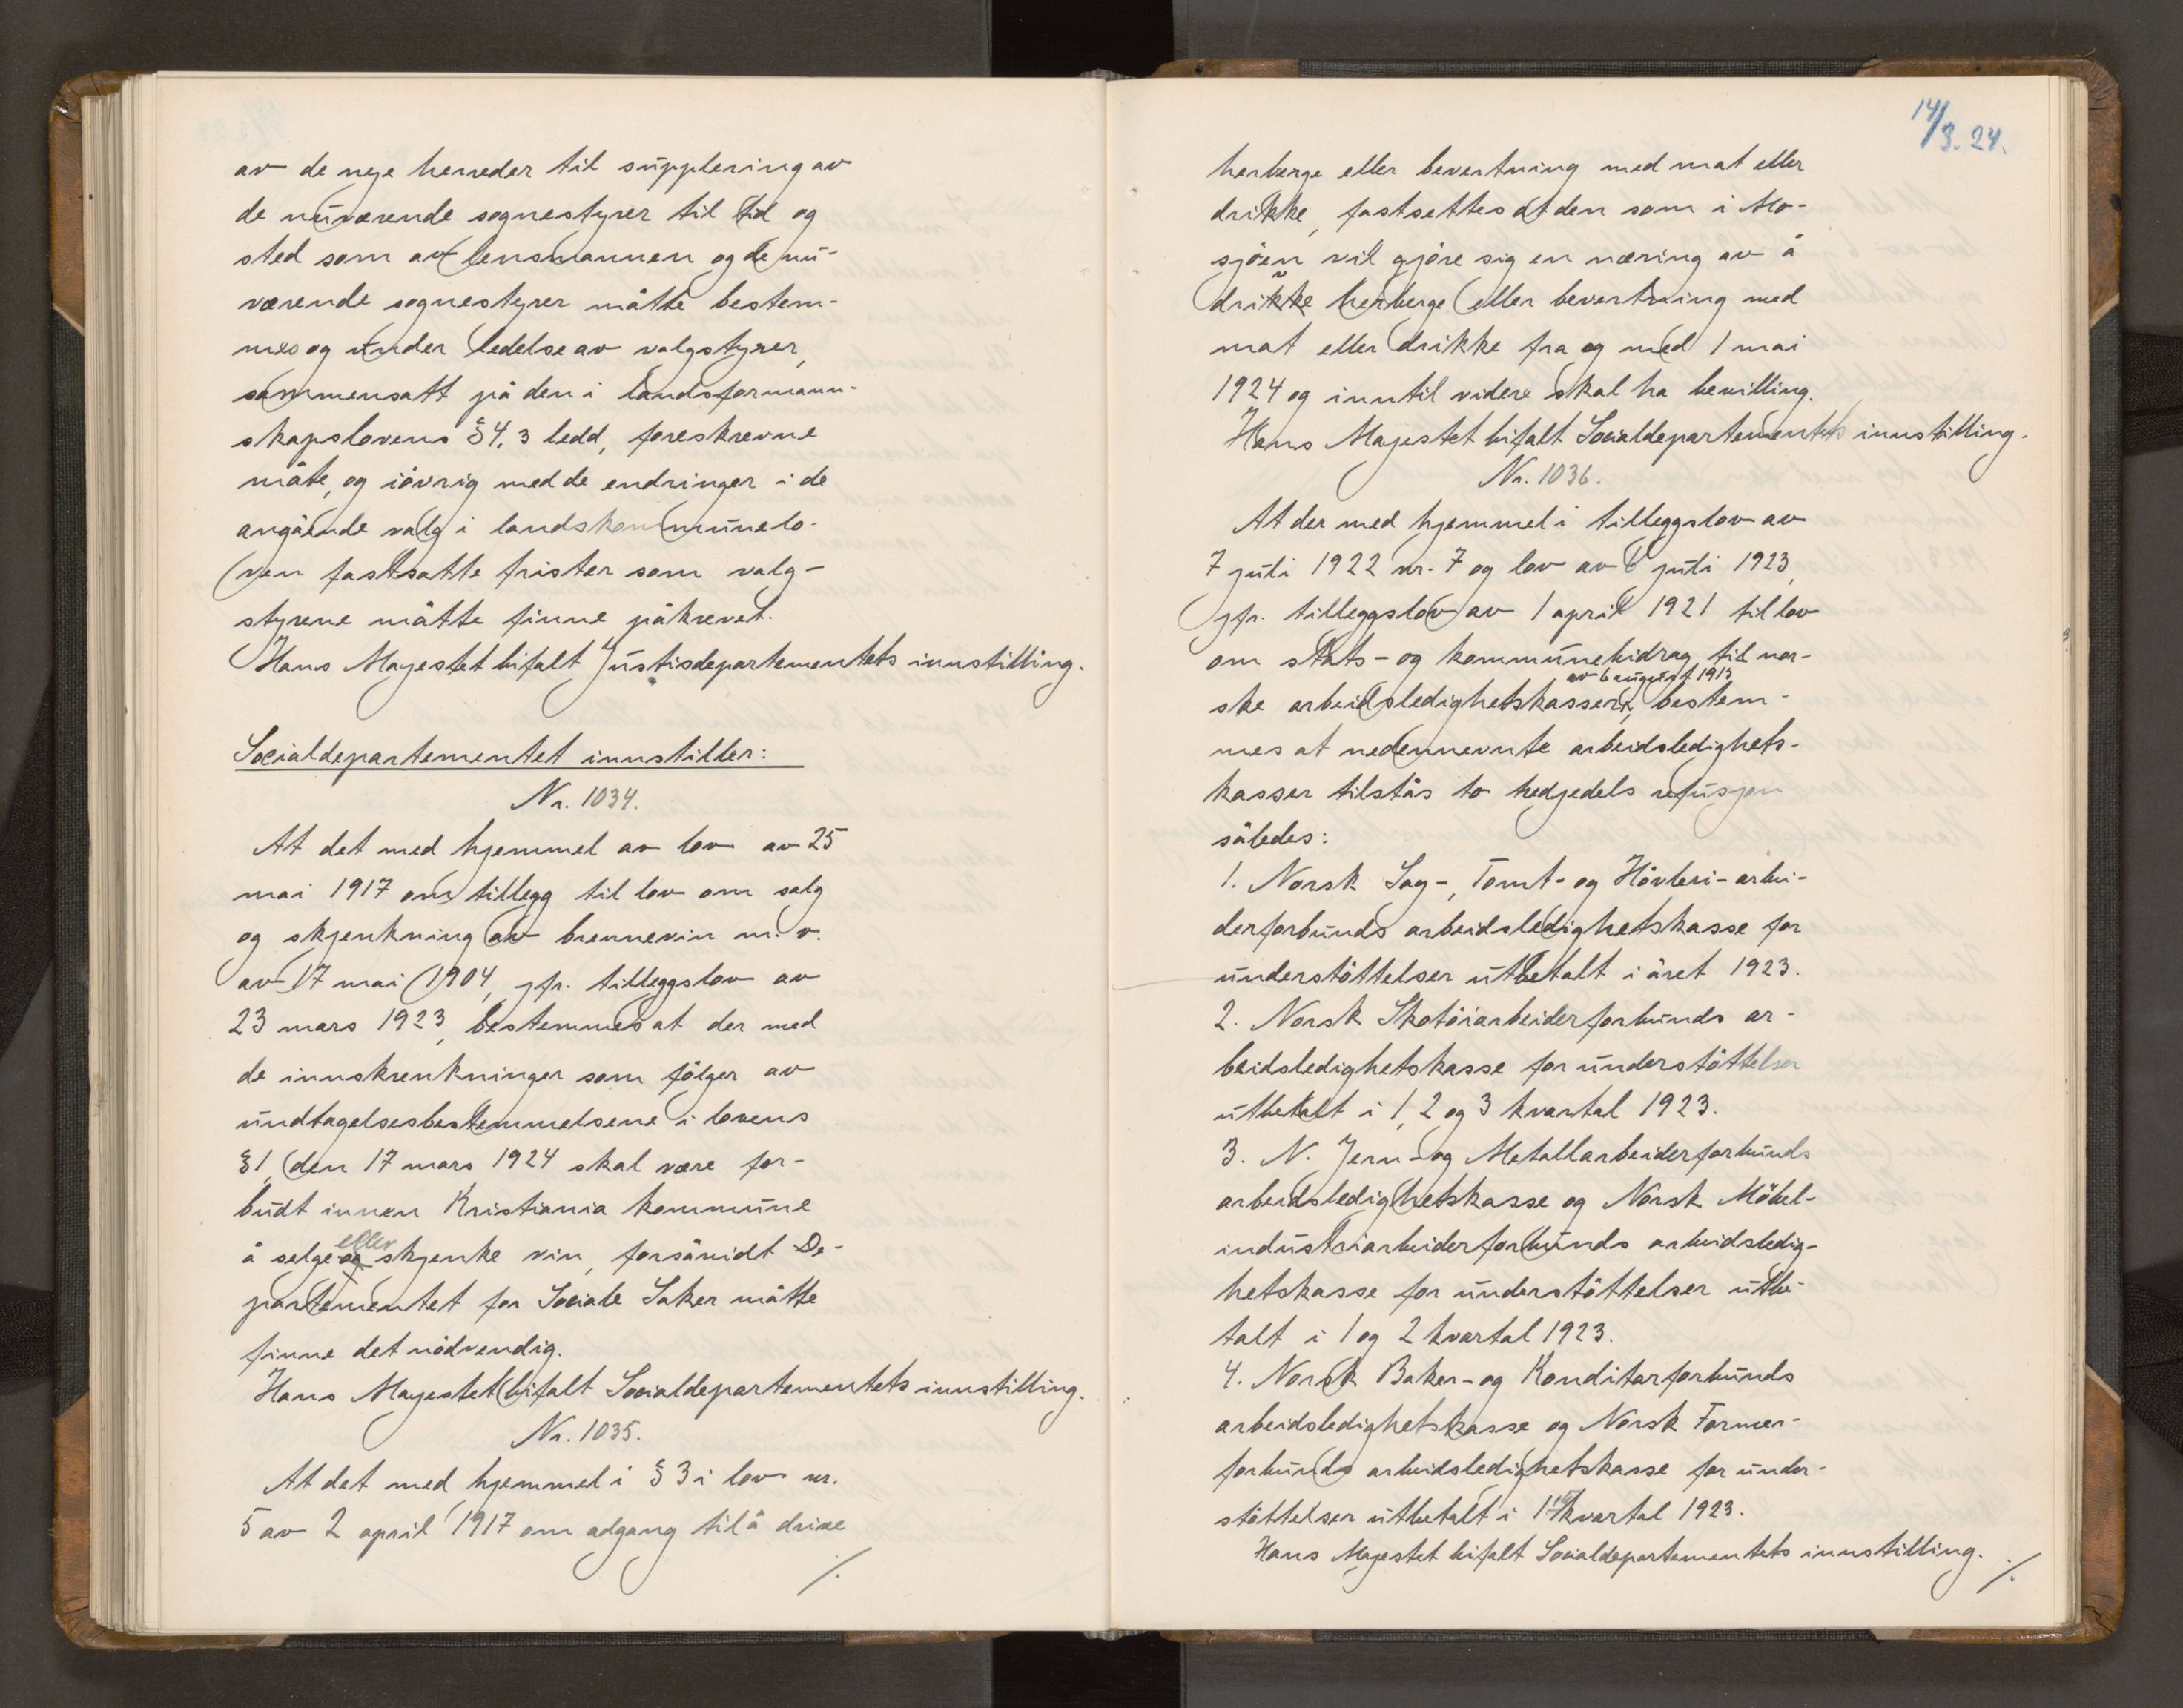 av de nye herreder til supplering av
de nuværende sognestyrer til tid og
sted som av lensmannen og de nu-
værende sognestyrer måtte bestem-
mes og under ledelse av valgstyrer,
sammensatt på den i landsformann-
skapslovens §4, 3 ledd, foreskrevne
måte, og iövrig med de endringer i de
angående valg i landskommunelo-
ven fastsatte frister som valg-
styrene måtte finne påkrevet.
Hans Majestet bifalt Justisdepartementets innstilling.
Socialdepartementet innstiller:
Nr. 1034.
At det med hjemmel av lov av 25
mai 1917 om tillegg til lov om salg
og skjenkning av brennevin m. v.
av 17 mai 1904, jfr. tilleggslov av
23 mars 1923, bestemmes at der med
de innskrenkninger som fölger av
undtagelsesbestemmelsene i lovens
§1, den 17 mars 1924 skal være for-
budt innen Kristiania kommune
eller
å selge og skjenke vin, forsåvidt De-
partementet for Sociale Saker måtte
finne det nödvendig.
Hans Majestet bifalt Socialdepartementets innstilling.
Nr. 1035.
At det med hjemmel i § 3 i lov nr.
5 av 2 april 1917 om adgang til å drive
./.
14/3. 24.
herberge eller bevertning med mat eller
drikke, fastsettes at den som i Mo-
sjöen vil gjöre sig en næring av å
v
drikke herberge eller bevertning med
mat eller drikke fra og med 1 mai
1924 og inntil videre skal ha bevilling.
Hans Majestet bifalt Socialdepartementets innstilling.
Nr. 1036.
At der med hjemmel i tilleggslov av
7 juli 1922 nr. 7 og lov av 6 juli 1923,
jfr. tilleggslov av 1 april 1921 til lov
om stats- og kommunebidrag til nor-
av 6 august 1915
ske arbeidsledighetskasser, bestem-
mes at nedennevnte arbeidsledighets-
kasser tilstås to tredjedels refusjon
således:
1. Norsk Sag-, Tomt- og Hövleri-arbei-
derforbunds arbeidsledighetskasse for
understöttelser utbetalt i året 1923.
2. Norsk Skotöiarbeiderforbunds ar-
beidsledighetskasse for understöttelser
utbetalt i 1, 2 og 3 kvartal 1923.
3. N. Jern- og Metallarbeiderforbunds
arbeidsledighetskasse og Norsk Möbel-
industriarbeiderforbunds arbeidsledig-
hetskasse for understöttelser utbe-
talt i 1 og 2 kvartal 1923.
4. Norsk Baker- og Konditorforbunds
arbeidsledighetskasse og Norsk Former-
forbunds arbeidsledighetskasse for under-
stöttelser utbetalt i 1 kvartal 1923.
Hans Majestet bifalt Socialdepartementets innstilling.
./.